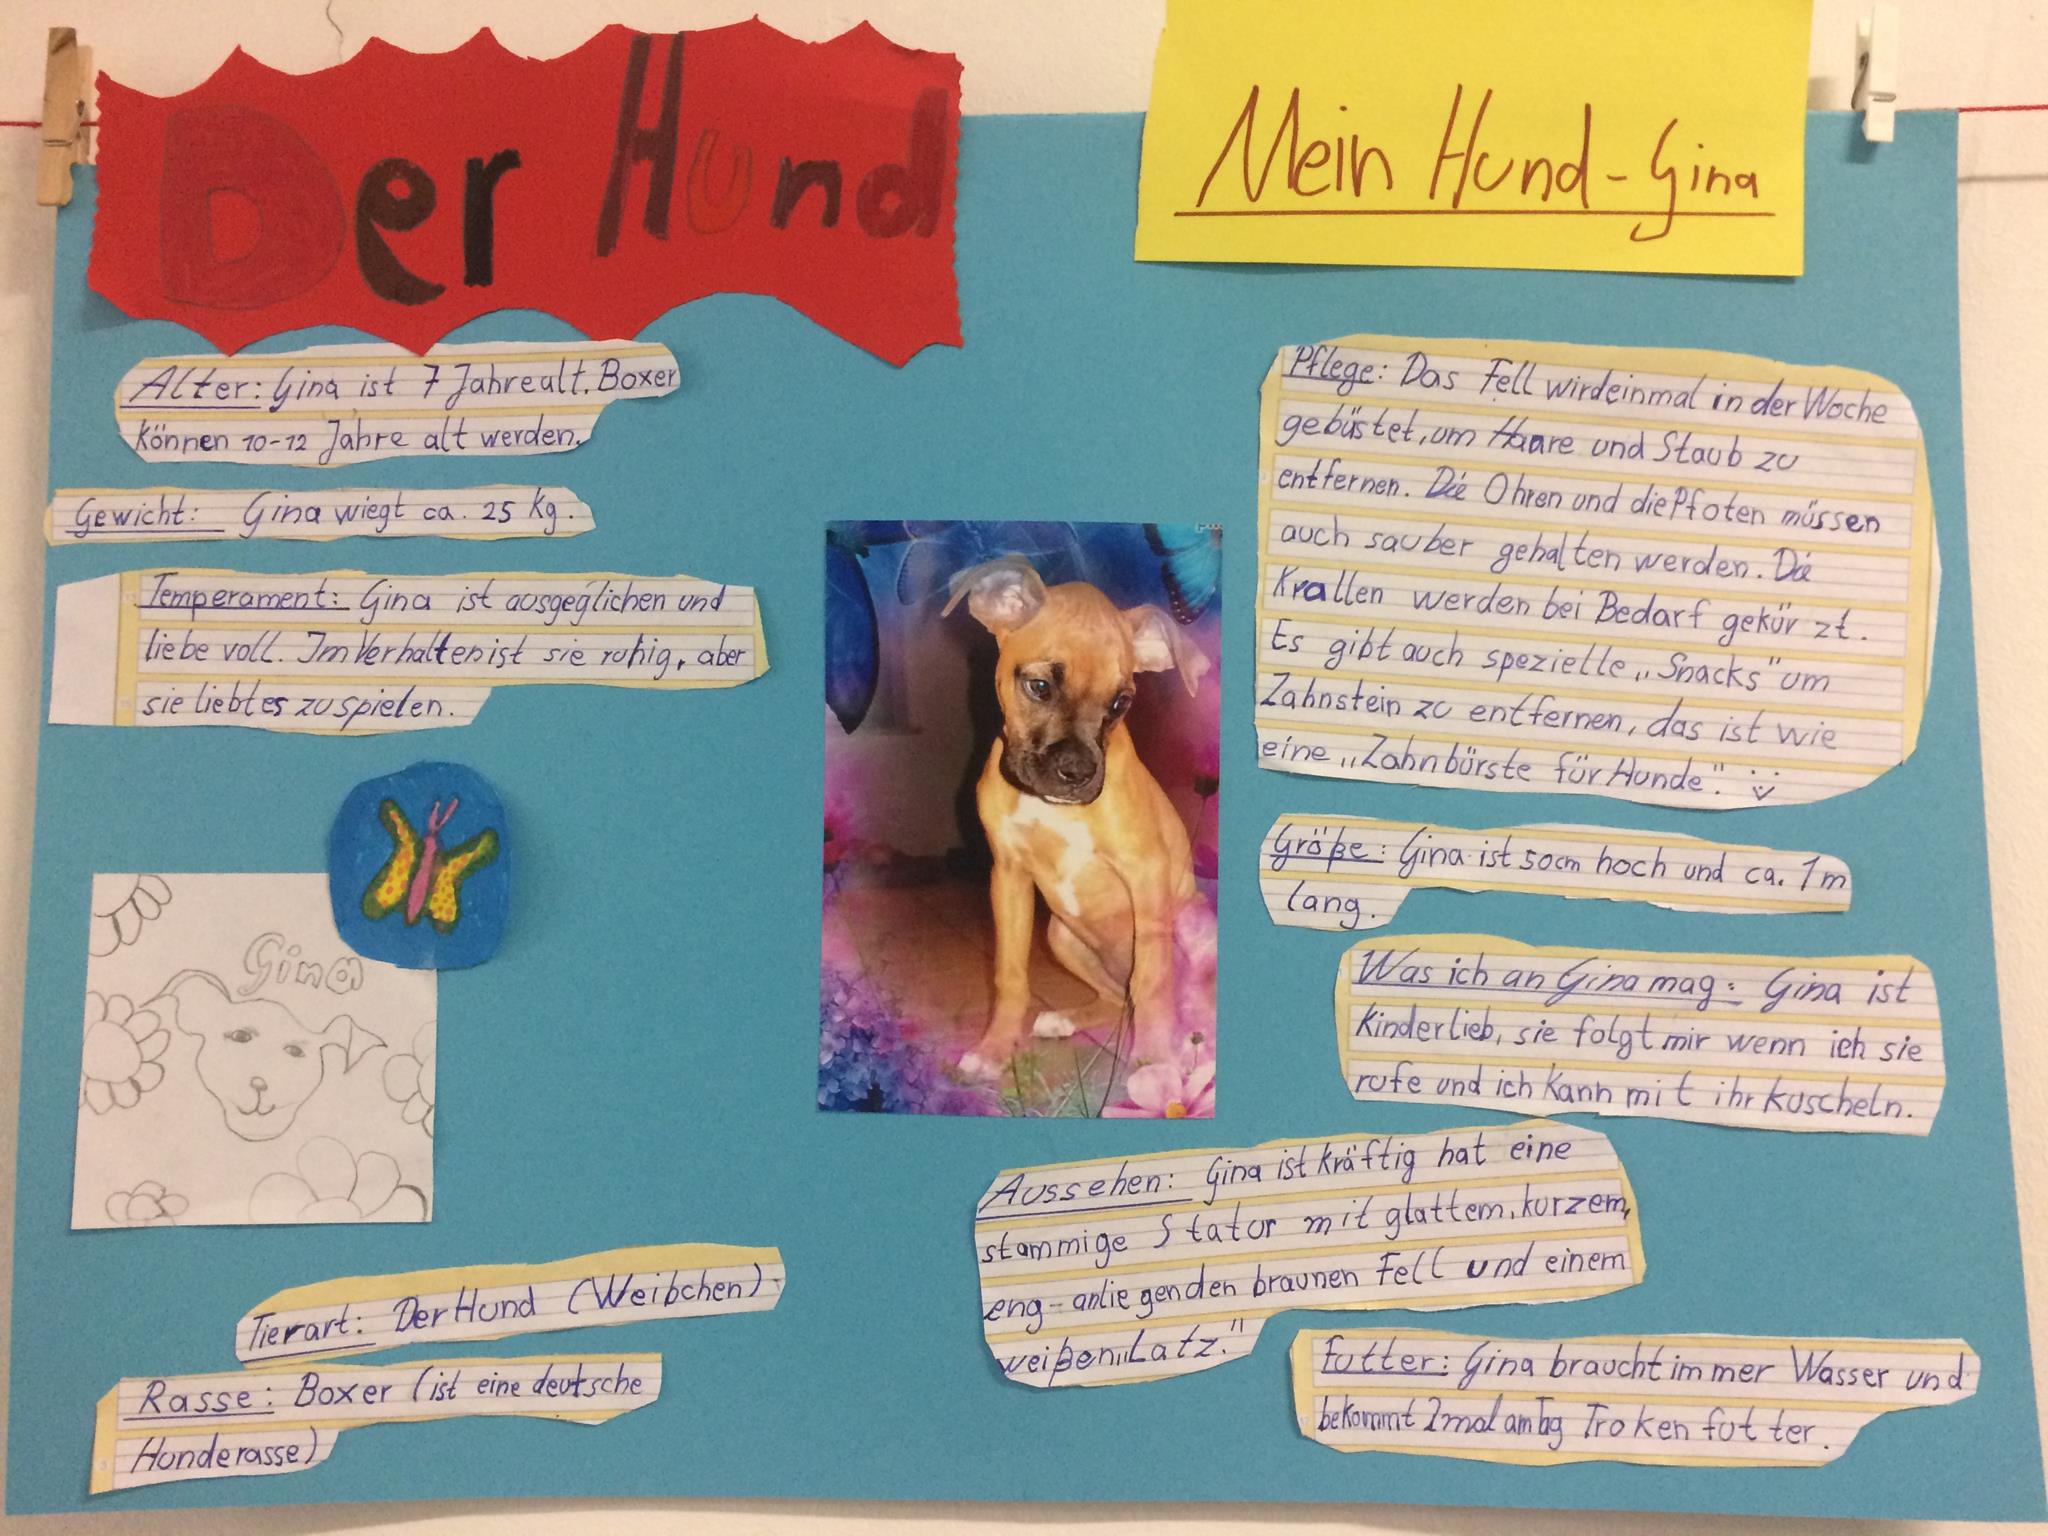 Der Hund
Mein Hund - Gina
Alter: Gina ist 7 Jahre alt. Boxer
können 10-12 Jahre alt werden.
Gewicht: Gina wiegt ca. 25 kg.
Temperament: Gina ist ausgeglichen und
liebe voll. Im Verhalten ist sie ruhig, aber
sie liebt es zu spielen.
Gina
Tierart: Der Hund (Weibchen)
Rasse: Boxer (ist eine deutsche
Hunderasse)
Pflege: Das Fell wird einmal in der Woche
gebüstet, um Haare und Staub zu
entfernen. Die Ohren und die Pfoten müssen
auch sauber gehalten werden. Die
Krallen werden bei Bedarf gekürzt.
Es gibt auch spezielle „Snacks" um
Zahnstein zu entfernen, das ist wie
eine „Zahnbürste für Hunde".
Größe: Gina ist 50cm hoch und ca. 1m
lang.
Was ich an Gina mag: Gina ist
Kinderlieb, sie folgt mir wenn ich sie
rufe und ich kann mit ihr kuscheln.
Aussehen: Gina ist kräftig hat eine
stammige Statur mit glattem, kurzem,
eng-anliegenden braunen Fell und einem
weißen „Latz."
Futter: Gina braucht immer Wasser und
bekommt 2mal am Tag Troken futter.